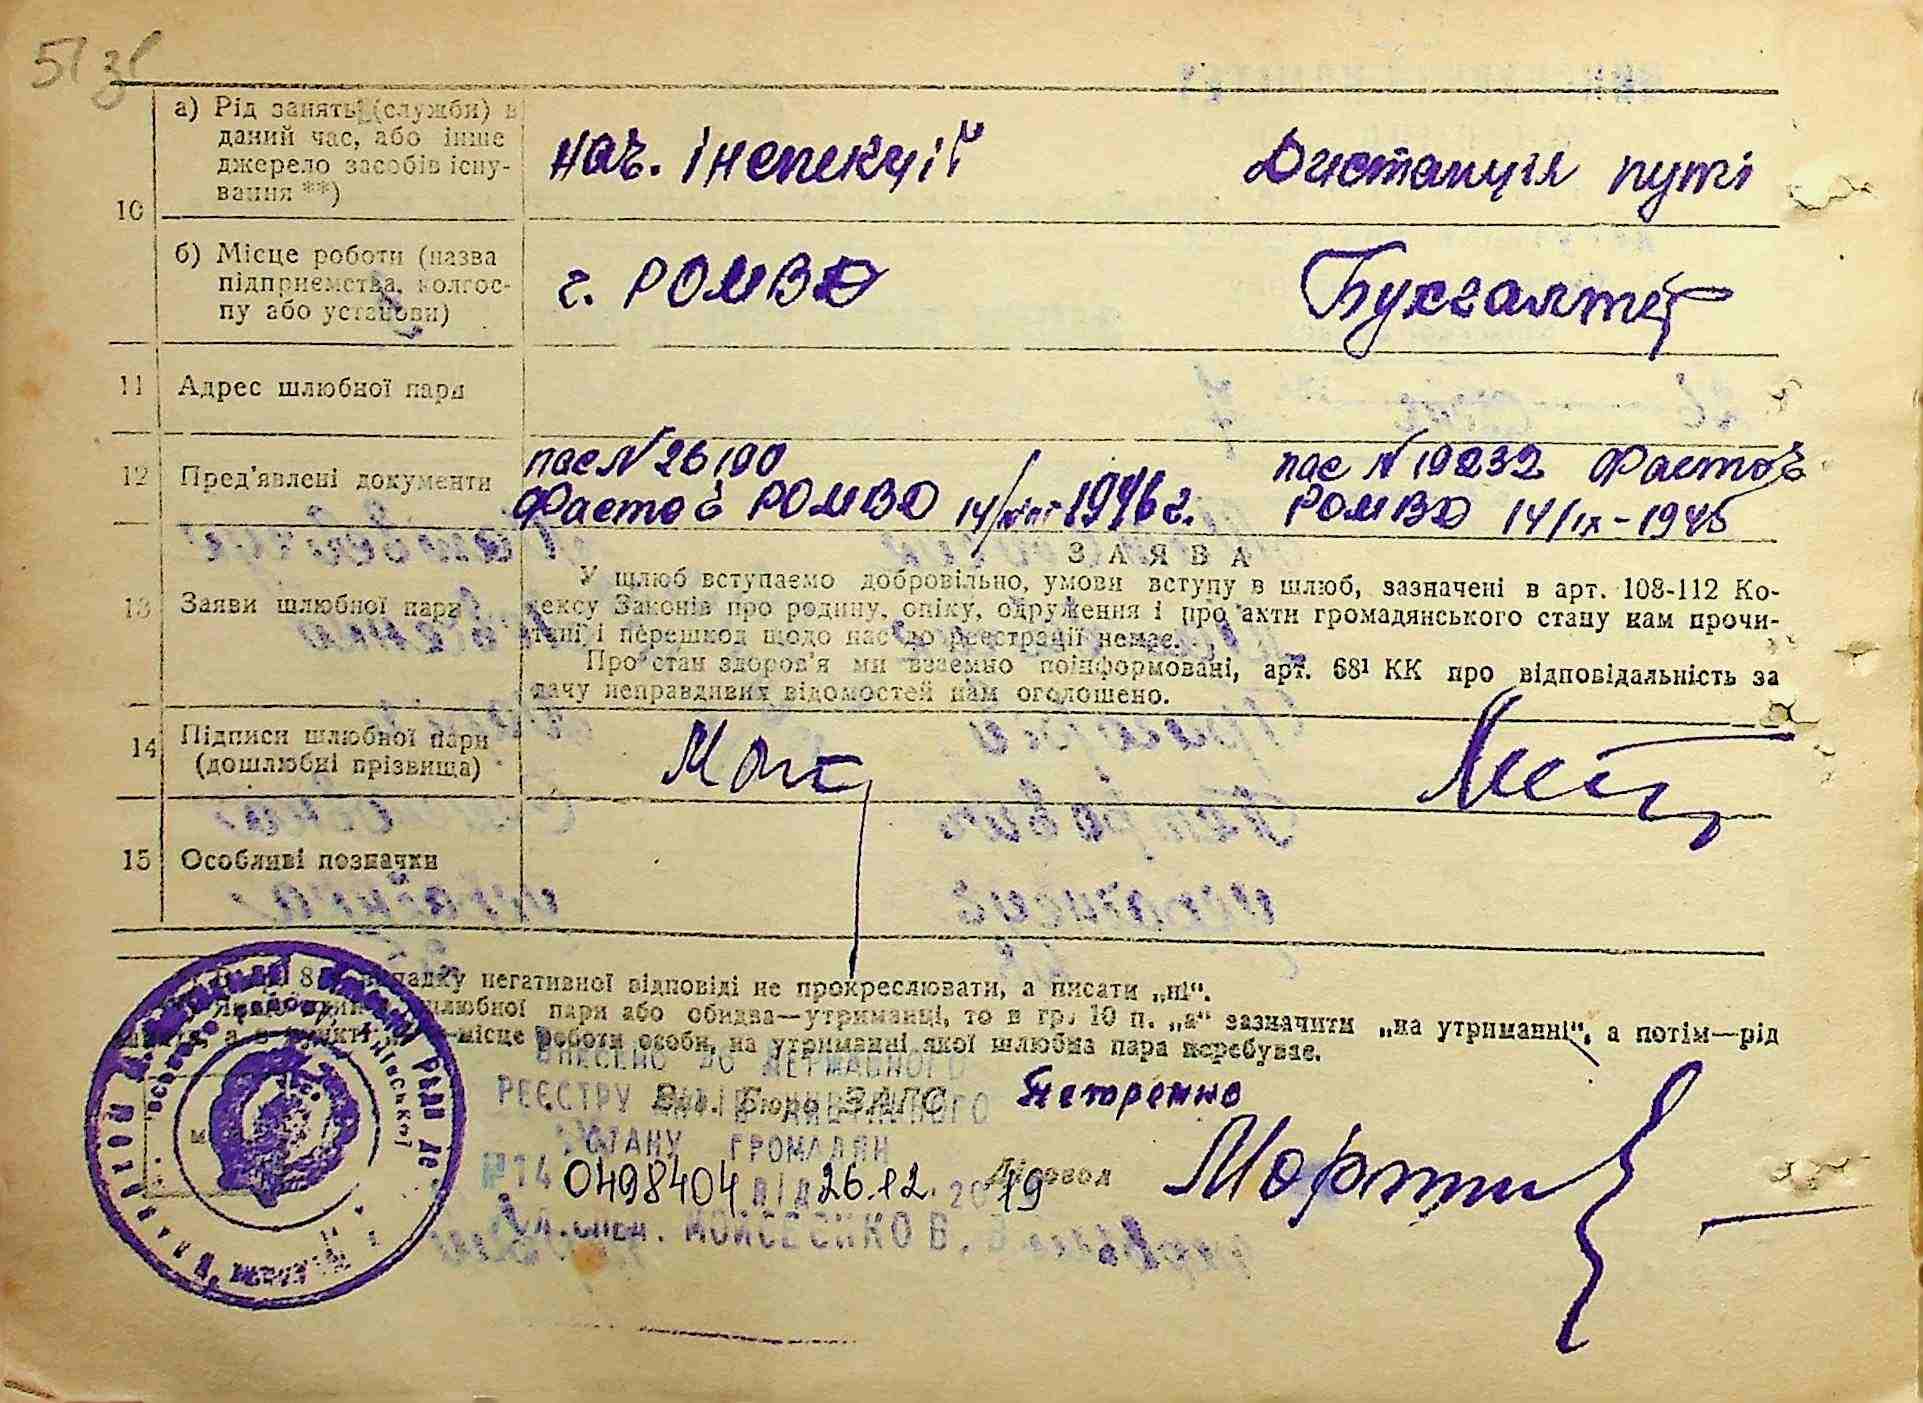 51 зв
10
а) Рід занять (служби) в
даний час, або інше
джерело засобів існу-
вання **)
нач. інспекції
Дистанція путі
б) Місце роботи (назва
підприємства, колгос-
пу або установи)
г. РОМВД
Бухгалтер
11 Адрес шлюбної пари
12 Пред'явлені документи
пас N 26190
Фастов РОМВД 14/VIII 1946 г.
пас N 19232 Фастов
РОМВД 14/IX-1945
13 Заяви шлюбної пари
ЗАЯВА
У шлюб вступаємо добровільно, умови вступу в шлюб, зазначені в арт. 108-112 Ко-
дексу Законів про родину, опіку, одруження і про акти громадянського стану нам прочи-
тані і перешкод щодо нас до реєстрації немає.
Про стан здоров'я ми взаємно поінформовані, арт. 68¹ КК про відповідальність за
дачу неправдивих відомостей нам оголошено.
14 Підписи шлюбної пари
(дошлюбні прізвища)
15 Особливі позначки
8 випадку негативної відповіді не прокреслювати, а писати „ні“.
шлюбної пари або обидва—утриманці, то в гр. 10 п. „а“ зазначити „на утриманні“, а потім—рід
а в пункті —місце роботи особи, на утриманні якої шлюбна пара перебуває.
ВНЕСЕНО ДО ДЕРЖАВНОГО
РЕЄСТРУ АКТІВ ЦИВІЛЬНОГО
СТАНУ ГРОМАДЯН
Зав. Бюро ЗАГС Нестеренко
№14 0498404 від 26.12. 2019
Діловод
СПЕЦ. МОЙСЕЄНКО В.